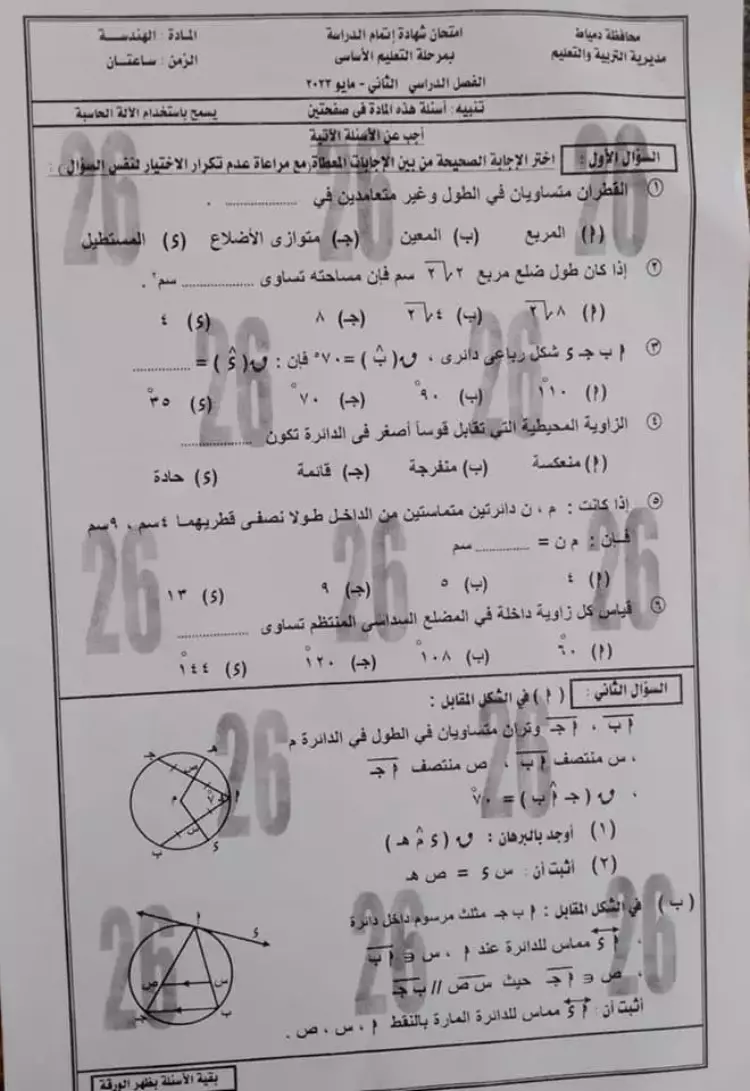 محافظة دمياط
مديرية التربية والتعليم
امتحان شهادة إتمام الدراسة
بمرحلة التعليم الأساسى
الفصل الدراسي الثاني - مايو ٢٠٢٢
المادة: الهندسة
الزمن: ساعتان
تنبيه: أسئلة هذه المادة فى صفحتين
يسمح باستخدام الآلة الحاسبة
أجب عن الأسئلة الآتية
السؤال الأول : اختر الإجابة الصحيحة من بين الإجابات المعطاة (مع مراعاة عدم تكرار الاختيار لنفس السؤال) :
١ القطران متساويان في الطول وغير متعامدين في ............ .
(أ) المربع (ب) المعين (جـ) متوازى الأضلاع (ء) المستطيل
٢ إذا كان طول ضلع مربع ٢√٢ سم فإن مساحته تساوى ............ سم٢ .
(أ) ٨√٢ (ب) ٤√٢ (جـ) ٨ (ء) ٤
٣ أ ب جـ ء شكل رباعى دائرى ، ق(ب̂) = ٧٠° فإن : ق(ء̂) = ............
(أ) ١١٠° (ب) ٩٠° (جـ) ٧٠° (ء) ٣٥°
٤ الزاوية المحيطية التي تقابل قوساً أصغر فى الدائرة تكون ............
(أ) منعكسة (ب) منفرجة (جـ) قائمة (ء) حادة
٥ إذا كانت : م ، ن دائرتين متماستين من الداخل طولا نصفى قطريهما ٤سم ، ٩سم
فإن : م ن = ............ سم
(أ) ٤ (ب) ٥ (جـ) ٩ (ء) ١٣
٦ قياس كل زاوية داخلة في المضلع السداسى المنتظم تساوى ............
(أ) ٦٠° (ب) ١٠٨° (جـ) ١٢٠° (ء) ١٤٤°
السؤال الثاني : (أ) في الشكل المقابل :
أب ، أجـ وتران متساويان في الطول في الدائرة م
، س منتصف أب ، ص منتصف أجـ
، ق(جـ أ̂ ب) = ٧٠°
(١) أوجد بالبرهان : ق(ء م̂ هـ)
(٢) أثبت أن : س ء = ص هـ
جـ
هـ
ص
م
٧٠°
أ
س
ب
ء
(ب) في الشكل المقابل : أ ب جـ مثلث مرسوم داخل دائرة
، أء مماس للدائرة عند أ ، س ∈ أب
، ص ∈ أجـ حيث س ص // ب جـ
أثبت أن : أء مماس للدائرة المارة بالنقط أ ، س ، ص .
أ
ء
ص
س
جـ
ب
بقية الأسئلة بظهر الورقة
26
26
26
26
26
26
26
26
26
26
26
26
26